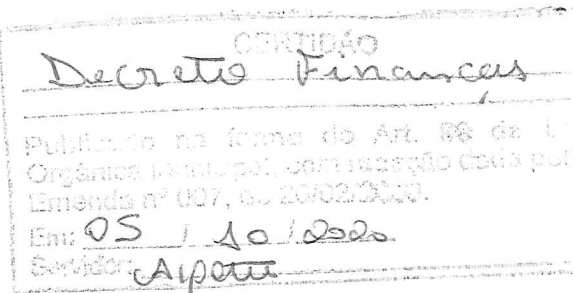 CERTIDÃO
Decreto Finanças
Publicado na forma do Art. 88 da L
Orgânica Municipal, com redação dada pel
Emenda nº 007, de 20/02/2020.
Em: 05 / 10 / 2020
Servidor: